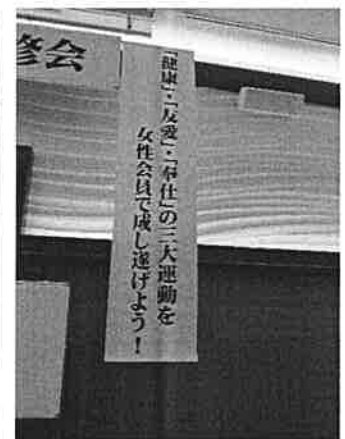 修会
「健康」・「友愛」・「奉仕」の三大運動を
女性会員で成し遂げよう！